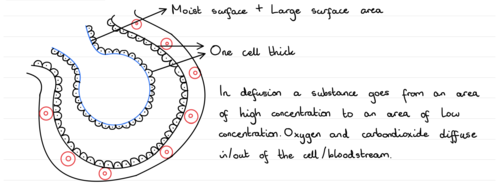 Moist surface + Large surface area
One cell thick
In defusion a substance goes from an area
of high concentration to an area of Low
concentration. Oxygen and carbondioxide diffuse
in/out of the cell/bloodstream.